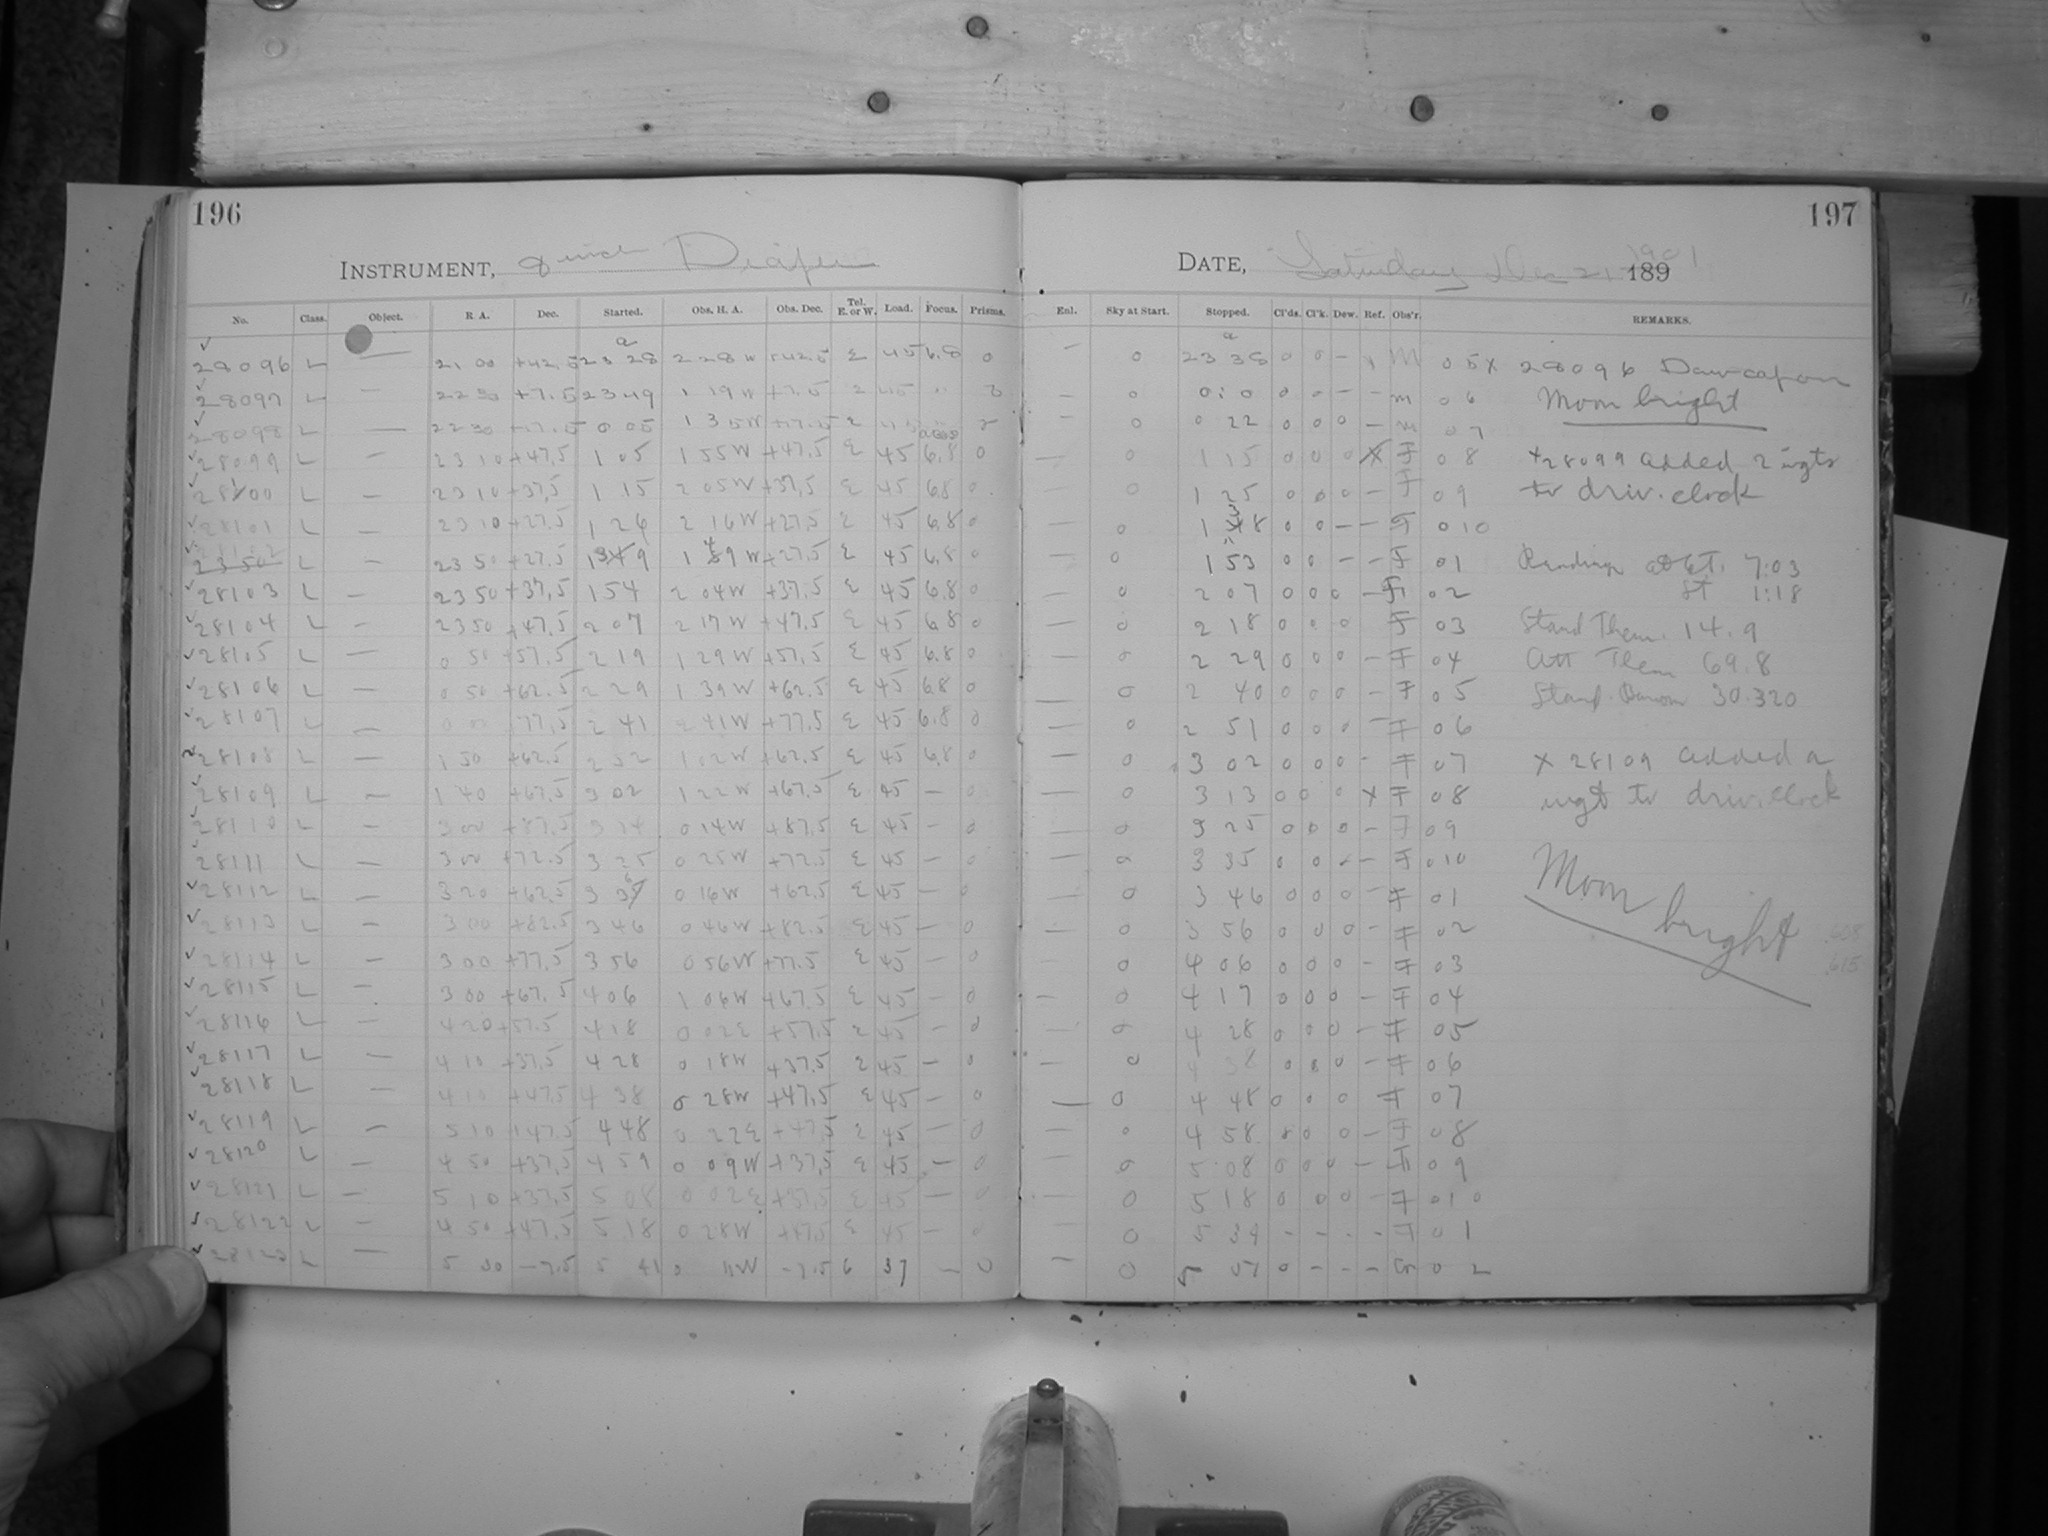 196
INSTRUMENT, 8 inch Draper
No. Class. Object. R A. Dec. Started. Obs. H. A. Obs. Dec. Tel. E. or W. Load. Focus. Prisms.
28096 L — 21 00 +42.5 23 28 2 28 W +42.5 E 45 6.8 0
28097 L — 22 30 +7.5 23 49 1 19 W +7.5 E 45 "
28098 L — 22 30 0 05 1 35 W 45
28099 L — 23 10 +47.5 1 05 1 55 W +47.5 E 45 6.8 0
28100 L — 23 10 +37.5 1 15 2 05 W +37.5 E 45 6.8 0
28101 L — 23 10 +27.5 1 26 2 16 W +27.5 E 45 6.8 0
2350 L — 23 50 +27.5 1 39 1 49 W +27.5 E 45 6.8 0
28103 L — 23 50 +37.5 1 54 2 04 W +37.5 E 45 6.8 0
28104 L — 23 50 +47.5 2 07 2 17 W +47.5 E 45 6.8 0
28105 L — 0 50 +57.5 2 19 1 29 W +57.5 E 45 6.8 0
28106 L — 0 50 +62.5 2 29 1 39 W +62.5 E 45 6.8 0
28107 L — 0 00 +77.5 2 41 2 41 W +77.5 E 45 6.8 0
28108 L — 1 50 +62.5 2 52 1 02 W +62.5 E 45 6.8 0
28109 L — 1 40 +67.5 3 02 1 22 W +67.5 E 45 — 0
28110 L — 3 00 +87.5 3 14 0 14 W +87.5 E 45 — 0
28111 L — 3 00 +72.5 3 25 0 25 W +72.5 E 45 — 0
28112 L — 3 20 +62.5 3 36 0 16 W +62.5 E 45 — 0
28113 L — 3 00 +82.5 3 46 0 46 W +82.5 E 45 — 0
28114 L — 3 00 +77.5 3 56 0 56 W +77.5 E 45 — 0
28115 L — 3 00 +67.5 4 06 1 06 W +67.5 E 45 — 0
28116 L — 4 20 +57.5 4 18 0 02 E +57.5 E 45 — 0
28117 L — 4 10 +37.5 4 28 0 18 W +37.5 E 45 — 0
28118 L — 4 10 +47.5 4 38 0 28 W +47.5 E 45 — 0
28119 L — 5 10 +47.5 4 48 0 22 E +47.5 E 45 — 0
28120 L — 4 50 +37.5 4 59 0 09 W +37.5 E 45 — 0
28121 L — 5 10 +37.5 5 08 0 02 E +37.5 E 45 — 0
28122 L — 4 50 +47.5 5 18 0 28 W +47.5 E 45 — 0
28123 L — 5 30 -7.5 5 41 0 11 W -7.5 E 37 — 0
197
DATE, Saturday Dec 21, 1901 189
Enl. Sky at Start. Stopped. Cl'ds. Cl'k. Dew. Ref. Obs'r. REMARKS.
— 0 23 38 0 0 — x M 05 x 28096 Dew cap on
— 0 0 0 0 — — M 06 Moon bright
— 0 0 22 0 0 0 — M 07
— 0 1 15 0 0 0 X F 08 x 28099 added 2 wgts
— 0 1 25 0 0 0 — F 09 to driv. clock
0 1 38 0 0 — — F 0 10
0 1 53 0 0 — — F 01 Readings at 7:03
0 2 07 0 0 0 — F 02 ST 1:18
— 0 2 18 0 0 0 F 03 Stand Them. 14.9
— 0 2 29 0 0 0 — F 04 Att Them 69.8
— 0 2 40 0 0 0 — F 05 Stand. Barom 30.320
— 0 2 51 0 0 0 — F 06
— 0 3 02 0 0 0 — F 07 x 28109 added a
— 0 3 13 0 0 0 X F 08 wgt to driv. clock
— 0 3 25 0 0 0 — F 09
— 0 3 35 0 0 — — F 0 10 Moon bright
— 0 3 46 0 0 0 — F 01
— 0 3 56 0 0 0 — F 02
0 4 06 0 0 0 — F 03 .615
— 0 4 17 0 0 0 — F 04
— 0 4 28 0 0 0 — F 05
— 0 4 38 0 0 0 — F 06
— 0 4 48 0 0 0 — F 07
0 4 58 0 0 0 — F 08
— 0 5 08 0 0 0 — F 09
— 0 5 18 0 0 0 — F 0 10
— 0 5 34 - - - - F 0 1
— 0 5 0 - - - 0 2